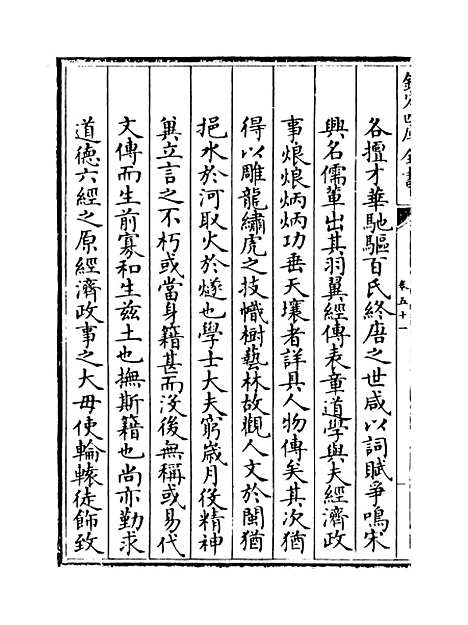 欽定四庫全書
卷五十一
各擅才華馳驅百氏終唐之世咸以詞賦爭鳴宋
興名儒輩出其羽翼經傳表章道學與夫經濟政
事烺烺炳炳功垂天壤者詳具人物傳矣其次猶
得以雕龍繡虎之技幟樹藝林故觀人文於閩猶
挹水於河取火於燧也學士大夫窮歲月役精神
冀立言之不朽或當身籍甚而沒後無稱或易代
文傳而生前寡和生兹土也撫斯籍也尚亦勤求
道德六經之原經濟政事之大毋使輪轅徒飾致